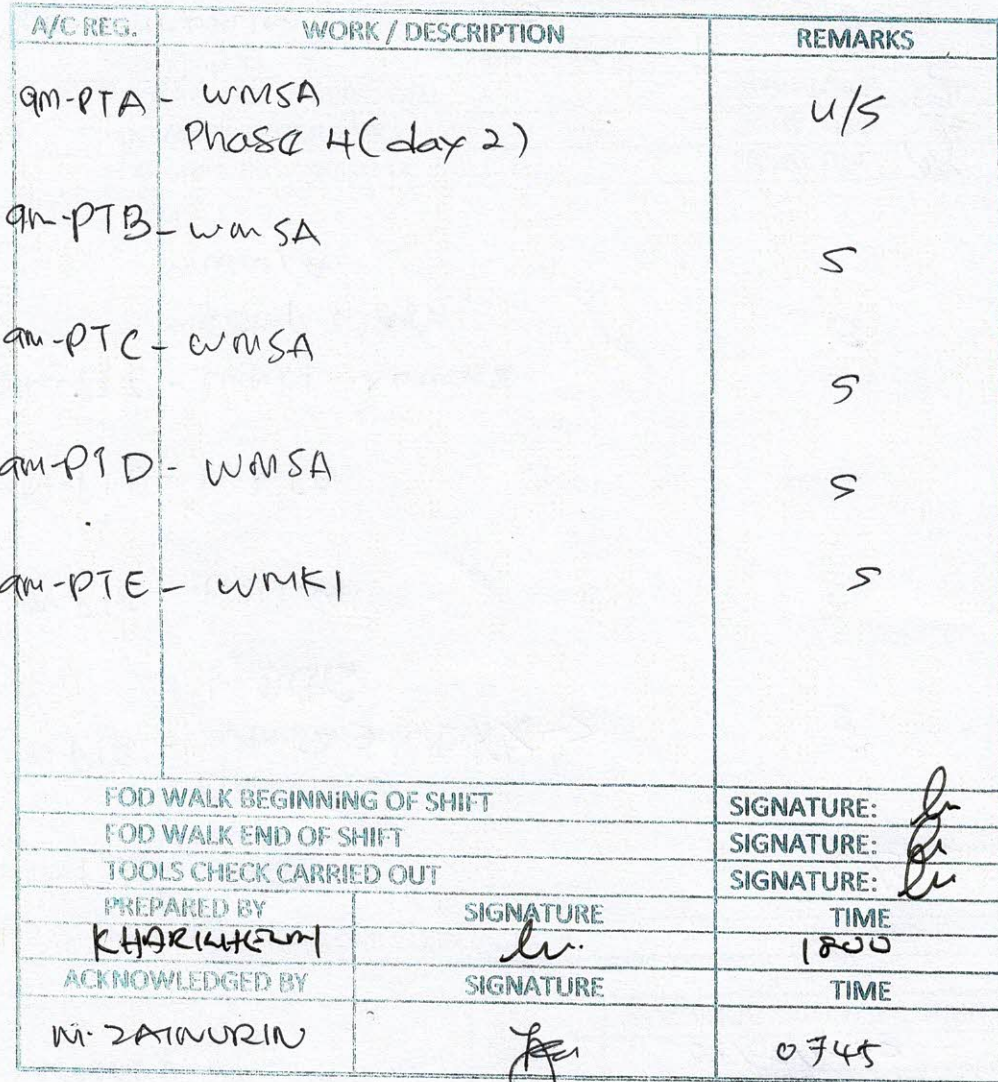 A/C REG. WORK / DESCRIPTION REMARKS
9M-PTA - WMSA U/S
Phase 4 (day 2)
9M-PTB - WMSA S
9M-PTC - WMSA S
9M-PTD - WMSA S
9M-PTE - WMKI S
FOD WALK BEGINNING OF SHIFT SIGNATURE:
FOD WALK END OF SHIFT SIGNATURE:
TOOLS CHECK CARRIED OUT SIGNATURE:
PREPARED BY SIGNATURE TIME
1800
ACKNOWLEDGED BY SIGNATURE TIME
M. ZAINURIN 0745